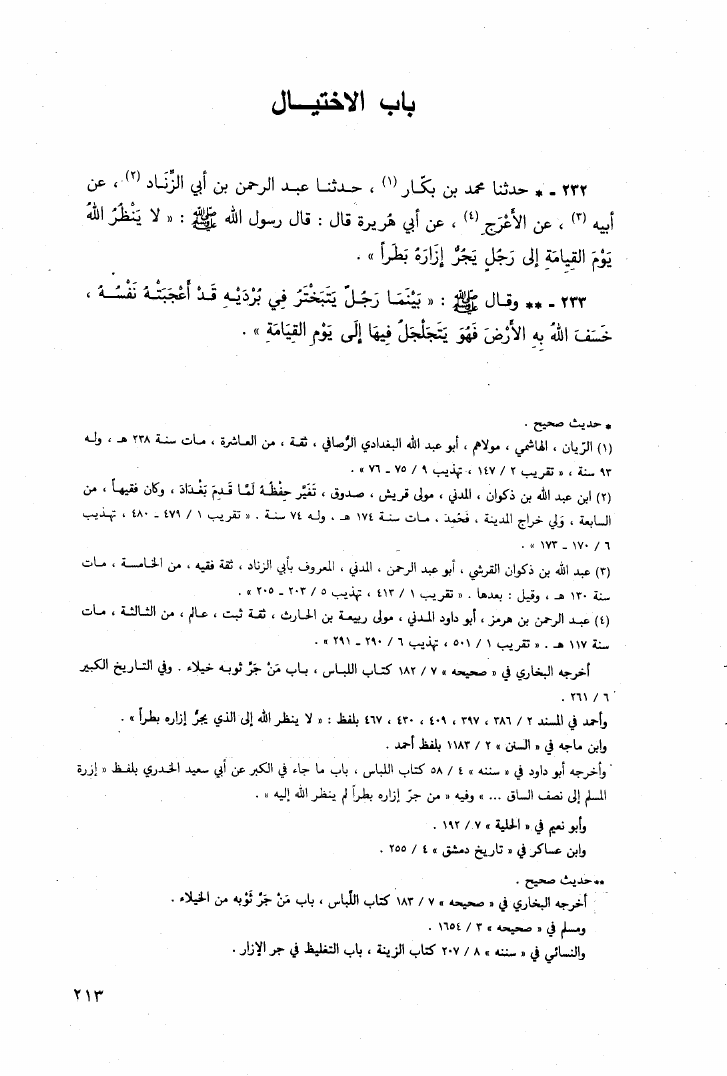 باب الاختيـال
٢٣٢ - * حدثنا محمد بن بكّـار (١) ، حـدثنـا عبـد الرحمن بن أبي الزِّنَـاد (٢) ، عن
أبيه (٣) ، عن الأَعْرَج (٤) ، عن أبي هُريرة قال : قال رسول الله ﷺ : « لا يَنْظُرُ اللهُ
يَوْمَ القِيامَةِ إلى رَجُلٍ يَجُرُّ إزَارَهُ بَطَراً » .
٢٣٣ - ** وقـال ﷺ : « بَيْنَمَـا رَجُـلٌ يَتَبَخْتَرُ فِي بُرْدَيْـهِ قَـدْ أَعْجَبَتْـهُ نَفْسُـهُ ،
خَسَفَ اللهُ بِهِ الأَرْضَ فَهُوَ يَتَجَلْجَلُ فِيهَا إلَى يَوْمِ القِيَامَةِ » .
* حديث صحيح .
(١) الرّيان ، الهاشمي ، مولاهم ، أبو عبد الله البغدادي الرُّصافي ، ثقـة ، من العـاشرة ، مـات سنـة ٢٣٨ هـ ، ولـه
٩٣ سنة ، « تقريب ٢ / ١٤٧ ، تهذيب ٩ / ٧٥ - ٧٦ » .
(٢) ابن عبد الله بن ذكوان ، المدني ، مولى قريش ، صدوق ، تَغَيَّر حِفْظُـهُ لَمَّا قَـدِمَ بَغْـدَادَ ، وكان فقيهـاً ، من
السابعة ، وَلي خراج المدينة ، فَحُمِدَ ، مـات سنـة ١٧٤ هـ ، ولـه ٧٤ سنـة . « تقريب ١ / ٤٧٩ - ٤٨٠ ، تهـذيب
٦ / ١٧٠ - ١٧٣ » .
(٣) عبد الله بن ذكوان القرشي ، أبو عبد الرحمن ، المدني ، المعروف بأبي الزناد ، ثقة فقيه ، من الخـامسـة ، مـات
سنة ١٣٠ هـ ، وقيل : بعدها . « تقريب ١ / ٤١٣ ، تهذيب ٥ / ٢٠٣ - ٢٠٥ » .
(٤) عبـد الرحمن بن هرمز ، أبو داود المـدني ، مولى ربيعـة بن الحـارث ، ثقـة ثبت ، عـالم ، من الثـالثـة ، مـات
سنة ١١٧ هـ . « تقريب ١ / ٥٠١ ، تهذيب ٦ / ٢٩٠ - ٢٩١ » .
أخرجه البخاري في « صحيحه » ٧ / ١٨٢ كتـاب اللبـاس ، بـاب مَنْ جَرَّ ثوبـه خيلاء . وفي التـاريخ الكبير
٦ / ٢٦١ .
وأحمد في المسند ٢ / ٣٨٦ ، ٣٩٧ ، ٤٠٩ ، ٤٣٠ ، ٤٦٧ بلفظ : « لا ينظر الله إلى الذي يجرُّ إزاره بطراً » .
وابن ماجه في « السنن » ٢ / ١١٨٣ بلفظ أحمد .
وأخرجه أبو داود في « سننه » ٤ / ٥٨ كتاب اللباس ، باب ما جاء في الكبر عن أبي سعيد الخـدري بلفـظ « إزرة
المسلم إلى نصف الساق ... » وفيه « من جرّ إزاره بطراً لم ينظر الله إليه » .
وأبو نعيم في « الحلية » ٧ / ١٩٢ .
وابن عساكر في « تاريخ دمشق » ٤ / ٢٥٥ .
** حديث صحيح .
أخرجه البخاري في « صحيحه » ٧ / ١٨٣ كتاب اللِّباس ، باب مَنْ جَرَّ ثَوْبه من الخيلاء .
ومسلم في « صحيحه » ٣ / ١٦٥٤ .
والنسائي في « سننه » ٨ / ٢٠٧ كتاب الزينة ، باب التغليظ في جر الإزار .
٢١٣